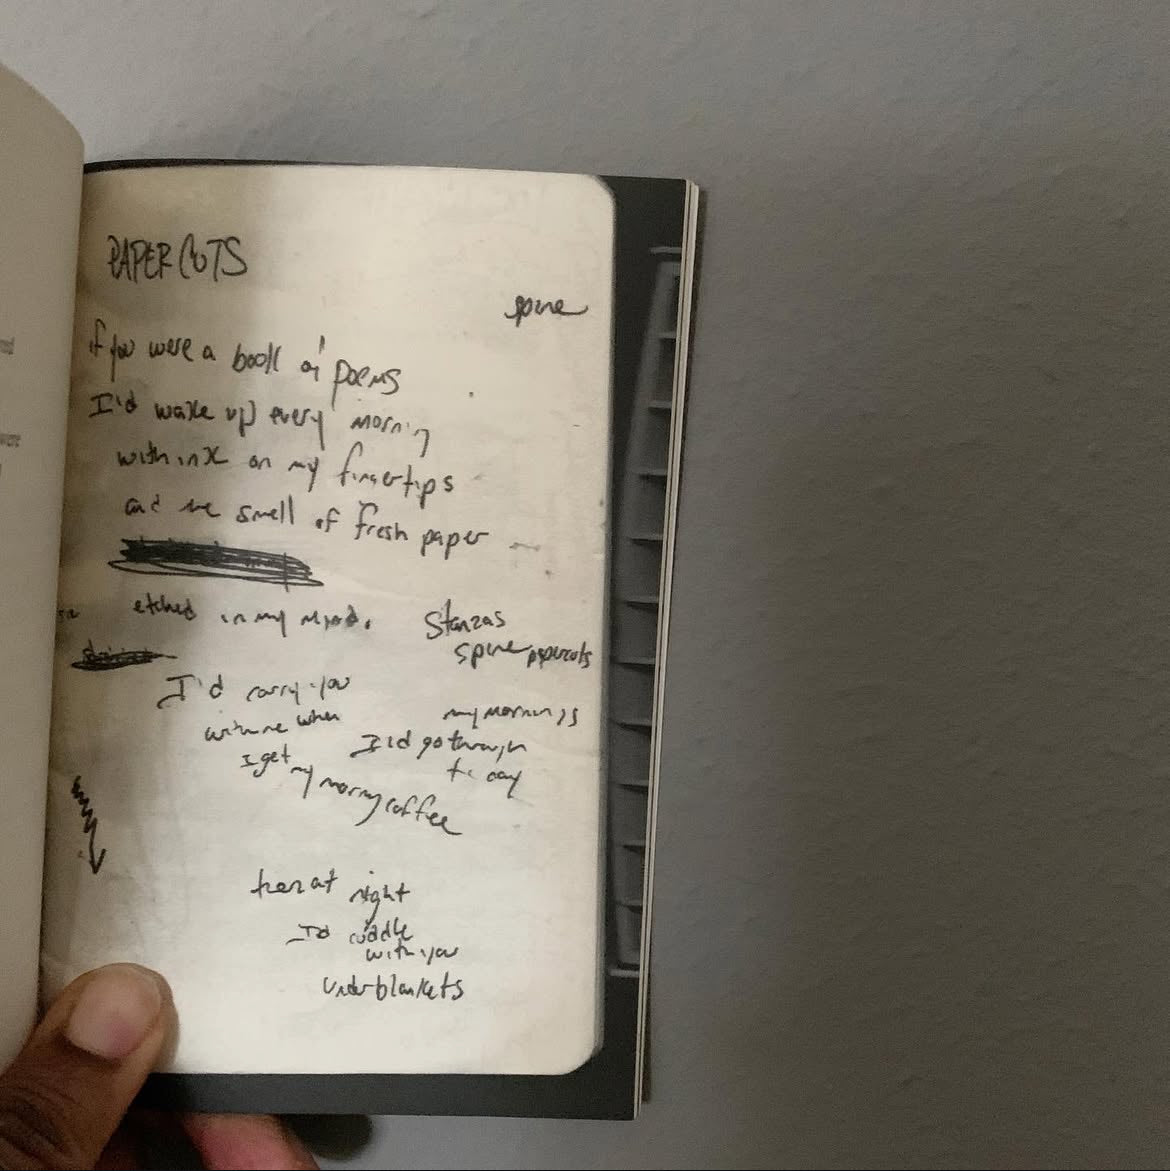 PAPER CUTS
spine
if you were a book of poems
I'd wake up every morning
with ink on my fingertips
and the smell of fresh paper
etched in my mind. Stanzas
spine papercuts
I'd carry you
with me when
I get my morning coffee
my mornings
I'd go through
the day
then at night
I'd cuddle
with you
under blankets